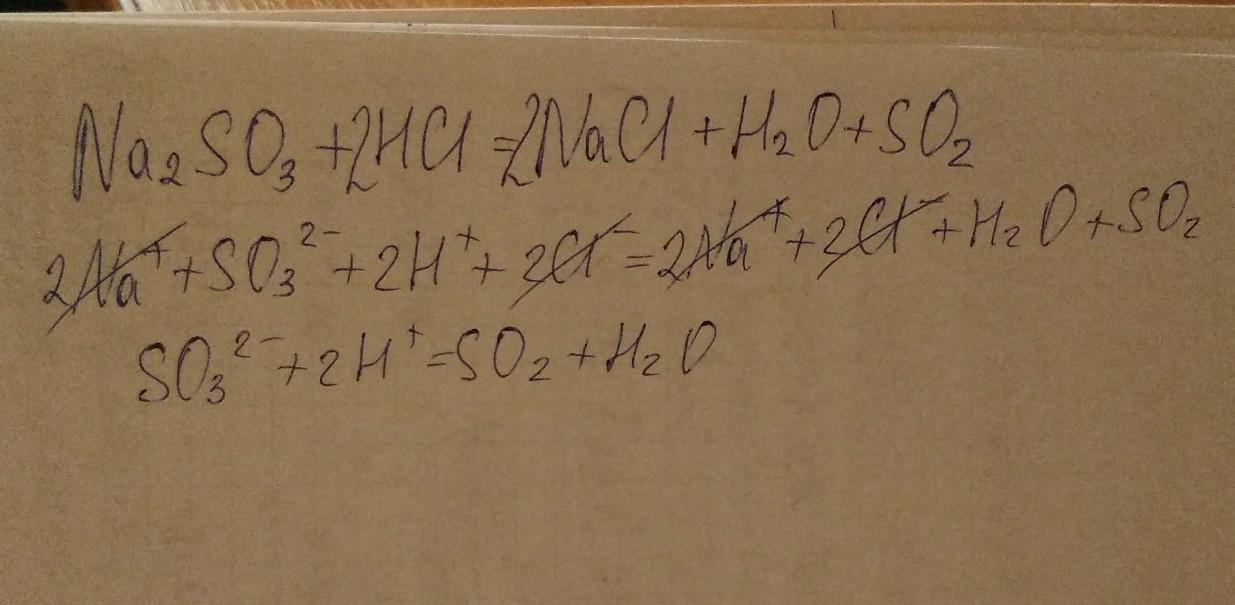 Na₂SO₃ + 2HCl = 2NaCl + H₂O + SO₂
2Na⁺ + SO₃²⁻ + 2H⁺ + 2Cl⁻ = 2Na⁺ + 2Cl⁻ + H₂O + SO₂
SO₃²⁻ + 2H⁺ = SO₂ + H₂O